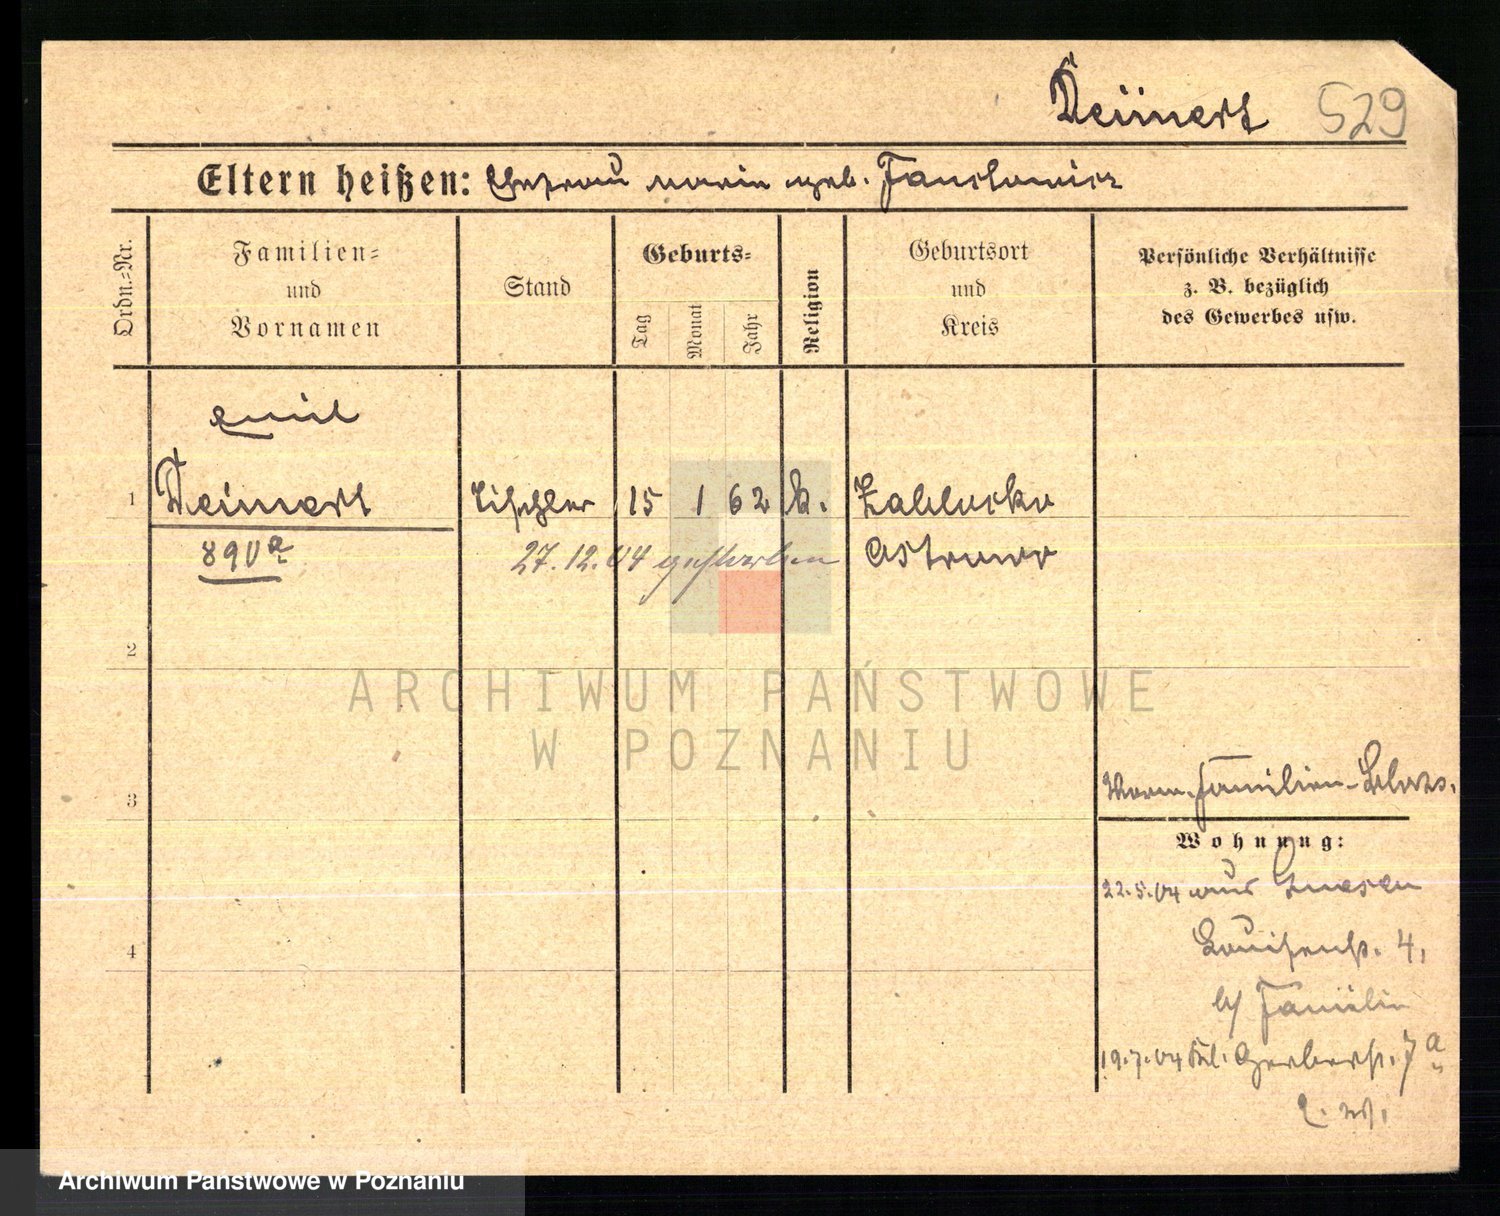 Deinert 529
Eltern heißen: Ehefrau Marie geb.
Ordn.-Nr.
Familien-
und
Vornamen
Stand
Geburts-
Tag
Monat
Jahr
Religion
Geburtsort
und
Kreis
Persönliche Verhältnisse
z. B. bezüglich
des Gewerbes usw.
Emil
1 Deinert Tischler 15 1 62 k.
890a 27.12.04 gestorben Ostrowo
2
ARCHIWUM PAŃSTWOWE
W POZNANIU
3
Familien-
Wohnung:
22.5.04 aus Gnesen
4
Louisenstr. 4,
b/ Familie
19.7.04 Gerberstr. 7a
Archiwum Państwowe w Poznaniu